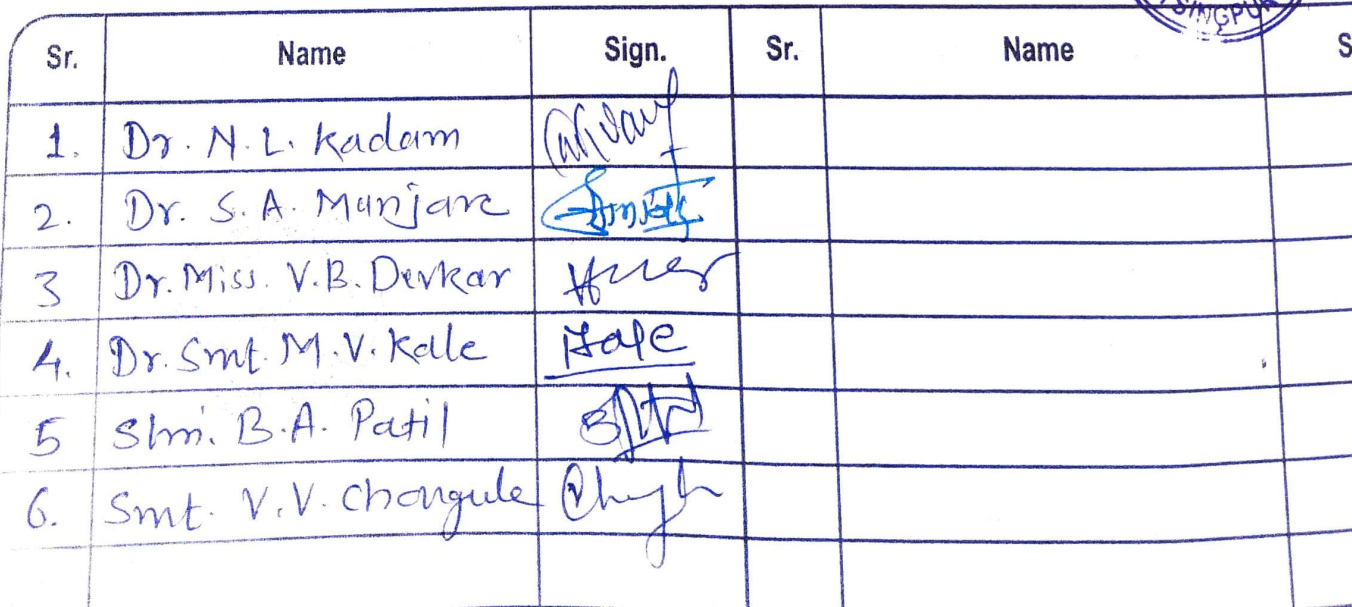 SINGPUR
Sr. Name Sign. Sr. Name S
1. Dr. N. L. Kadam
2. Dr. S. A. Munjare
3 Dr. Miss. V.B. Devkar
4. Dr. Smt. M. V. Kale
5 Shri. B.A. Patil
6. Smt. V.V. Chougule